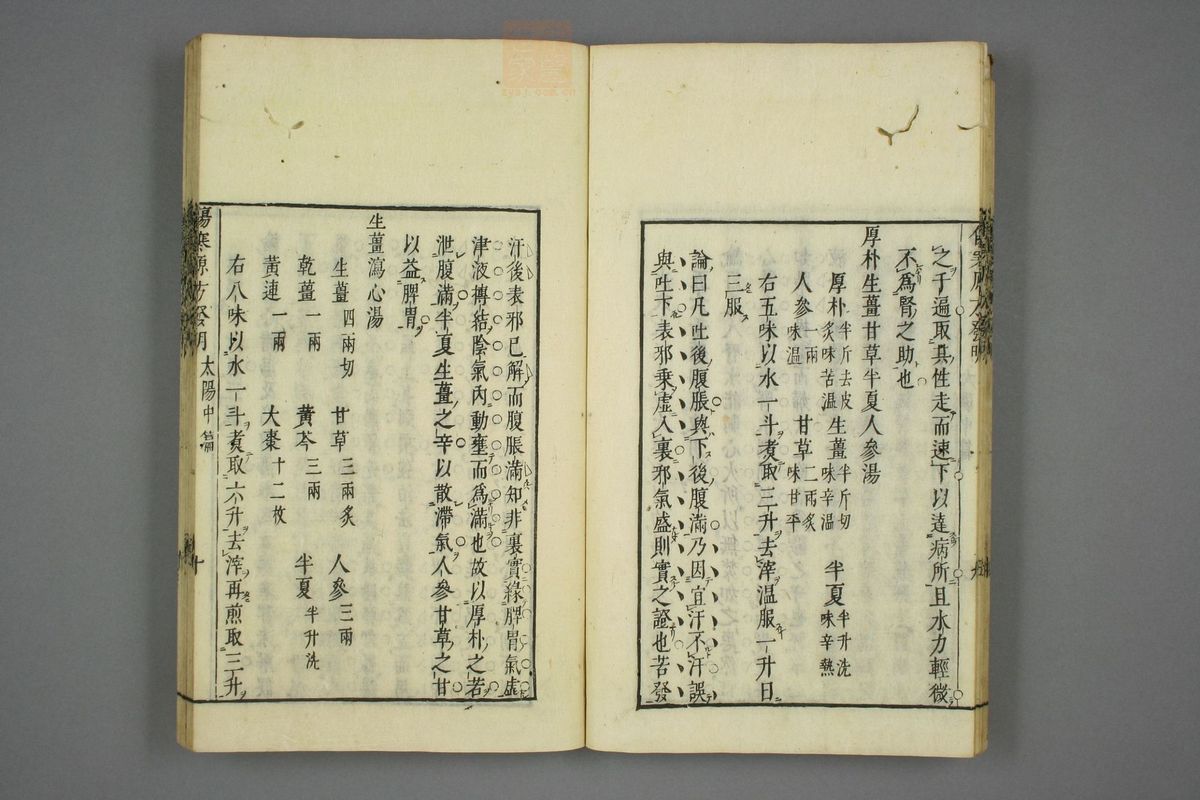 之千遍取其性走而速下以達病所且水力輕微
不爲腎之助也
厚朴生薑甘草半夏人參湯
厚朴半斤去皮炙味苦温 生薑半斤切味辛溫 半夏半升洗味辛熱
人參一兩味温 甘草二兩炙味甘平
右五味以水一斗煑取三升去滓温服一升日
三服
論曰凡吐後腹脹與下後腹滿乃因宜汗不汗誤
與吐下表邪乗虛入裏邪氣盛則實之證也若發
汗後表邪已解而腹脹滿知非裏實緣脾胃氣虛
津液摶結陰氣內動壅而爲滿也故以厚朴之苦
泄腹滿半夏生薑之辛以散滯氣人參甘草之甘
以益脾胃
生薑瀉心湯
生薑四兩切 甘草三兩炙 人參三兩
乾薑一兩 黃芩三兩 半夏半升洗
黃連一兩 大棗十二枚
右八味以水一斗煑取六升去滓再煎取三升
傷寒源方發明 太陽中篇 十